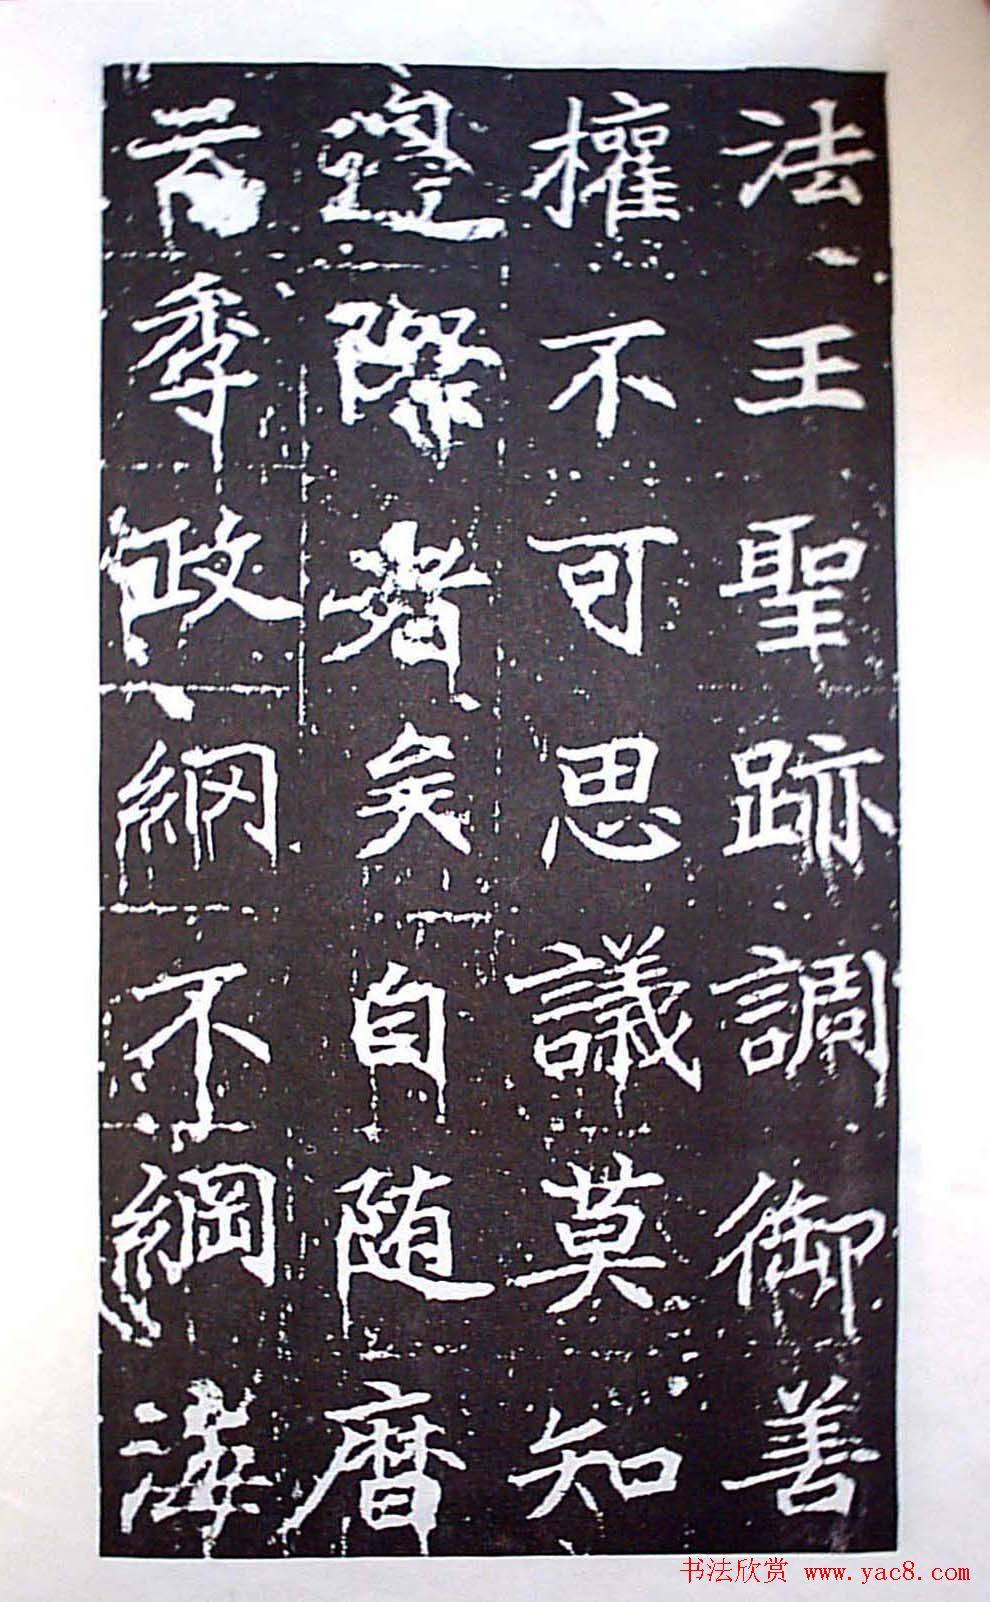 法王聖跡調御善
權不可思議莫知
邊際者矣自随曆
季政網不綱海
书法欣赏 www.yac8.com